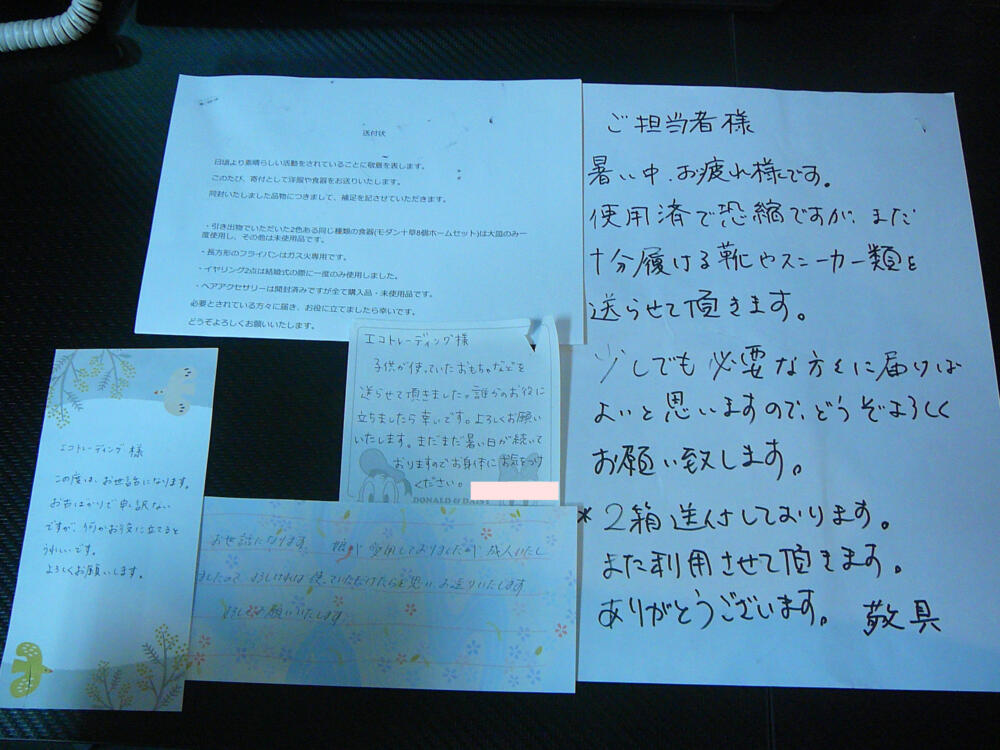 送付状
日頃より素晴らしい活動をされていることに敬意を表します。
このたび、寄付として洋服や食器をお送りいたします。
同封いたしました品物につきまして、補足を記させていただきます。
・引き出物でいただいた2色ある同じ種類の食器(モダン十草8個ホームセット)は大皿のみ一
度使用し、その他は未使用品です。
・長方形のフライパンはガス火専用です。
・イヤリング2点は結婚式の際に一度のみ使用しました。
・ヘアアクセサリーは開封済みですが全て購入品・未使用品です。
必要とされている方々に届き、お役に立てましたら幸いです。
どうぞよろしくお願いいたします。
ご担当者様
暑い中、お疲れ様です。
使用済で恐縮ですが、まだ
十分履ける靴やスニーカー類を
送らせて頂きます。
少しでも必要な方々に届けば
よいと思いますので、どうぞよろしく
お願い致します。
*2箱送付しております。
また利用させて頂きます。
ありがとうございます。 敬具
エコトレーディング様
子供が使っていたおもちゃなどを
送らせて頂きました。誰かのお役に
立ちましたら幸いです。よろしくお願い
いたします。まだまだ暑い日が続いて
おりますのでお身体にお気をつけ
ください。
DONALD & DAISY
エコトレーディング 様
この度は、お世話になります。
お古ばかりで申訳ない
ですが、何かお役に立てると
うれしいです。
よろしくお願いします。
お世話になります。 娘が愛用しておりましたが成人いたし
ましたので よろしければ使っていただけたらと思い お送りいたします
よろしくお願いいたします